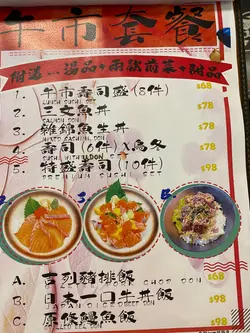 午市套餐
附送:湯品+兩款前菜+甜品
1. 午市寿司盛 (8件) $68
LUNCH SUSHI SET
2. 三文魚丼 $78
SALMON DON
3. 雜錦魚生丼 $78
4. 寿司 (6件) 入烏冬 $78
SUSHI WITH UDON
5. 特盛寿司 (10件) $98
PREMIUM SUSHI SET
A B
A. 吉列豬排飯 $68
B. 日本一口牛丼飯 $98
C. 原條鰻魚飯 $98